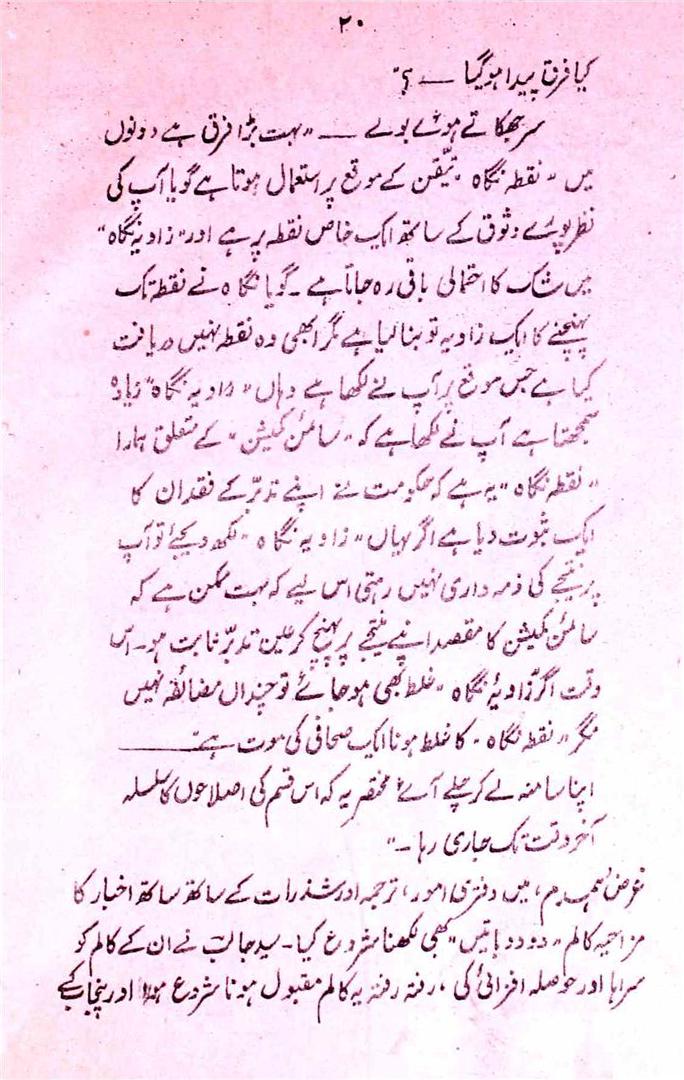 ۲۰
کیا فرق پیدا ہوگیا ــــ ؟"
سر جھکاتے ہوئے بولے ــــ "بہت بڑا فرق ہے دونوں
میں "نقطہ نگاہ" تیقّن کے موقع پر استعمال ہوتا ہے گویا آپ کی
نظر پورے وثوق کے ساتھ ایک خاص نقطہ پر ہے اور "زاویہ نگاہ"
میں شک کا احتمالی باقی رہ جاتا ہے ۔ گویا نگاہ نے نقطہ تک
پہنچنے کا ایک زاویہ تو بنا لیا ہے مگر ابھی وہ نقطہ نہیں دریافت
کیا ہے جس موقع پر آپ نے لکھا ہے وہاں "زاویہ نگاہ" زیادہ
سمجھتا ہے آپ نے لکھا ہے کہ "سائمن کمیشن" کے متعلق ہمارا
"نقطہ نگاہ" یہ ہے کہ حکومت نے اپنے تدبّر کے فقدان کا
ایک ثبوت دیا ہے اگر یہاں "زاویہ نگاہ" لکھ دیجئے تو آپ
پر نتیجے کی ذمہ داری نہیں رہتی اس لیے کہ بہت ممکن ہے کہ
سائمن کمیشن کا مقصد اپنے نتیجے پر پہنچ کر عین تدبّر ثابت ہو۔ اس
وقت اگر "زاویۂ نگاہ" غلط بھی ہو جائے تو چنداں مضائقہ نہیں
مگر "نقطہ نگاہ" کا غلط ہونا ایک صحافی کی موت ہے ــــــ
اپنا سا منہ لے کر چلے آئے مختصر یہ کہ اس قسم کی اصلاحوں کا سلسلہ
آخر وقت تک جاری رہا ۔"
غرض ہمدم، میں دفتری امور، ترجمہ اور شذرات کے ساتھ ساتھ اخبار کا
مزاحیہ کالم "دو دو باتیں" بھی لکھنا شروع کیا ۔ سید جالب نے ان کے کالم کو
سراہا اور حوصلہ افزائی کی ، رفتہ رفتہ یہ کالم مقبول ہونا شروع ہوا اور پنجاب کے